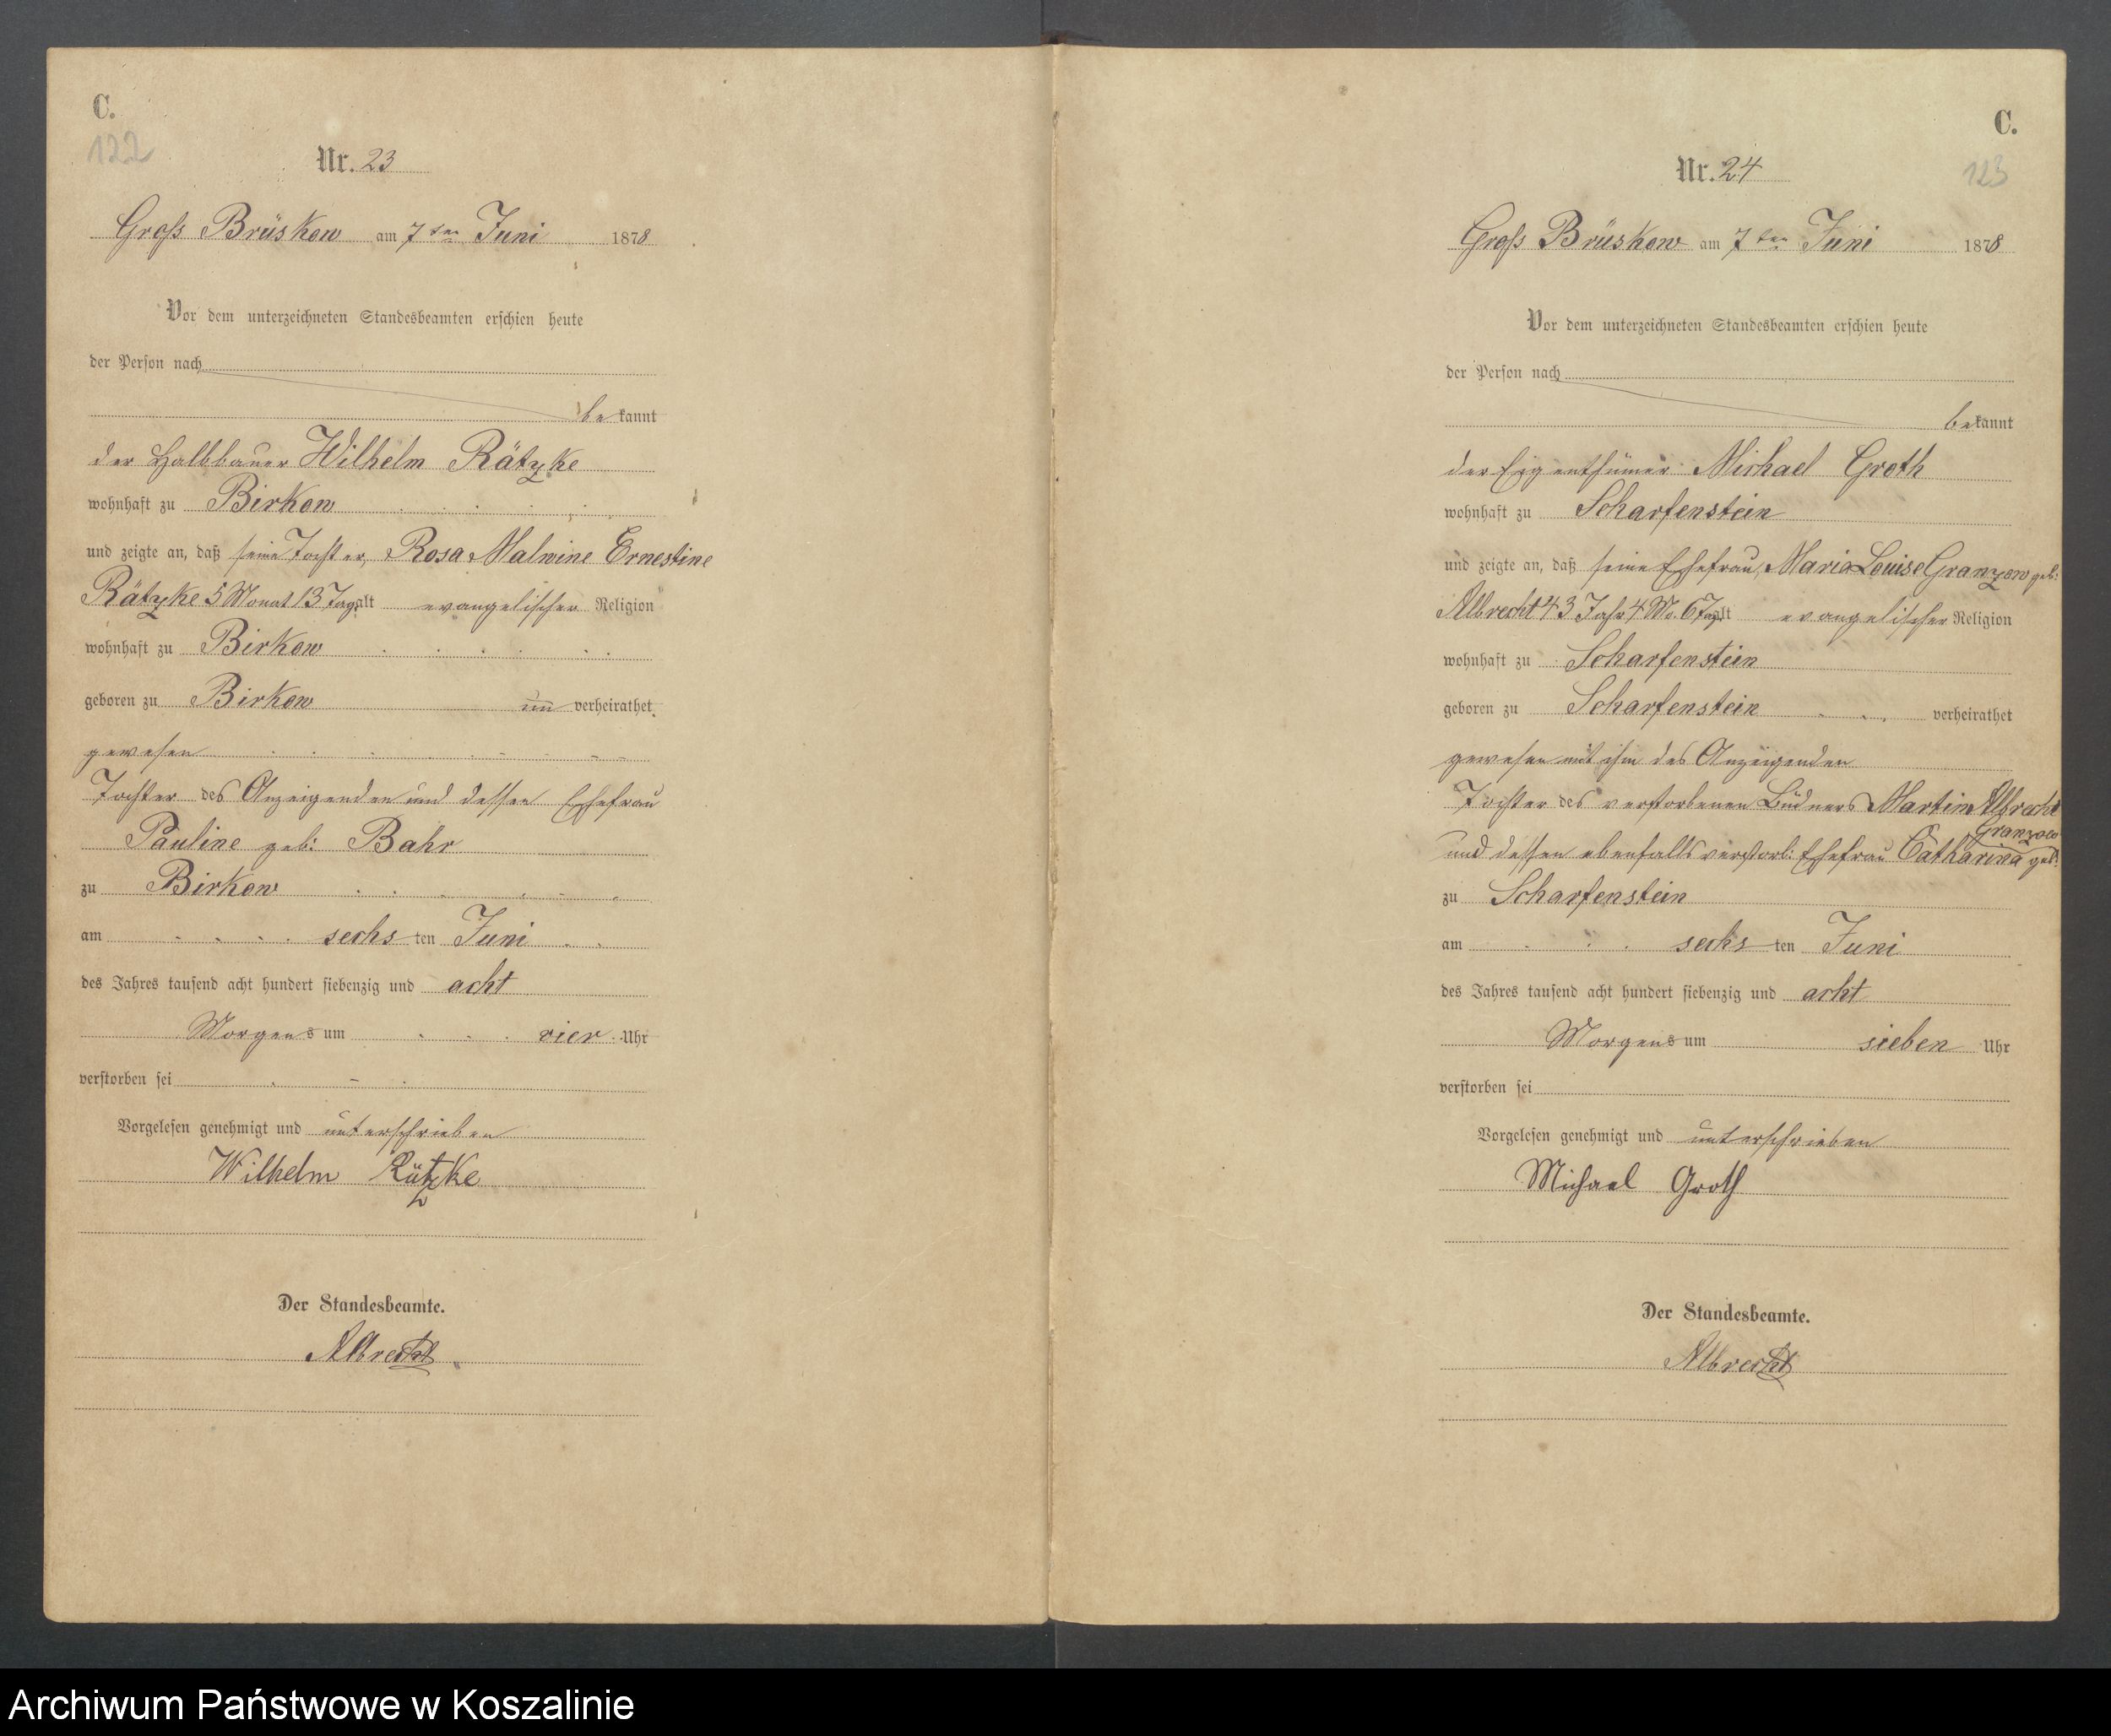 C.
122
Nr. 23
Groß Brüskow am 7ten Juni 1878
Vor dem unterzeichneten Standesbeamten erschien heute
der Person nach
bekannt
der Halbbauer Wilhelm Rätzke
wohnhaft zu Birkow
und zeigte an, daß seine Tochter, Rosa Malwine Ernestine
Rätzke 5 Monat 13 Tag alt evangelischer Religion
wohnhaft zu Birkow
geboren zu Birkow un verheirathet
gewesen
Tochter des Anzeigenden und dessen Ehefrau
Pauline geb: Bahr
zu Birkow
am sechsten Juni
des Jahres tausend acht hundert siebenzig und acht
Morgens um vier Uhr
verstorben sei
Vorgelesen genehmigt und unterschrieben
Wilhelm Rätzke
Der Standesbeamte.
Albrecht
C.
123
Nr. 24
Groß Brüskow am 7ten Juni 1878
Vor dem unterzeichneten Standesbeamten erschien heute
der Person nach
bekannt
der Eigenthümer Michael Groth
wohnhaft zu Scharfenstein
und zeigte an, daß seine Ehefrau, Maria Louise Granzow geb:
Albrecht 43 Jahr 4 Mo. 6 Tag alt evangelischer Religion
wohnhaft zu Scharfenstein
geboren zu Scharfenstein verheirathet
gewesen mit ihm des Anzeigenden
Tochter des verstorbenen Büdners Martin Albrecht
Granzow
und dessen ebenfalls verstorb: Ehefrau Catharina geb:
zu Scharfenstein
am sechsten Juni
des Jahres tausend acht hundert siebenzig und acht
Morgens um sieben Uhr
verstorben sei
Vorgelesen genehmigt und unterschrieben
Michael Groth
Der Standesbeamte.
Albrecht
Archiwum Państwowe w Koszalinie